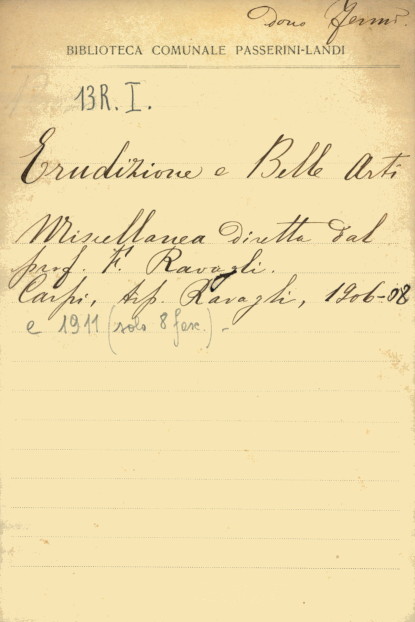 dono Fermi
BIBLIOTECA COMUNALE PASSERINI-LANDI
13R. I.
Erudizione e Belle Arti
Miscellanea diretta dal
prof. F. Ravagli.
Carpi, tip. Ravagli, 1906-08
e 1911 (solo 8 fasc.) -